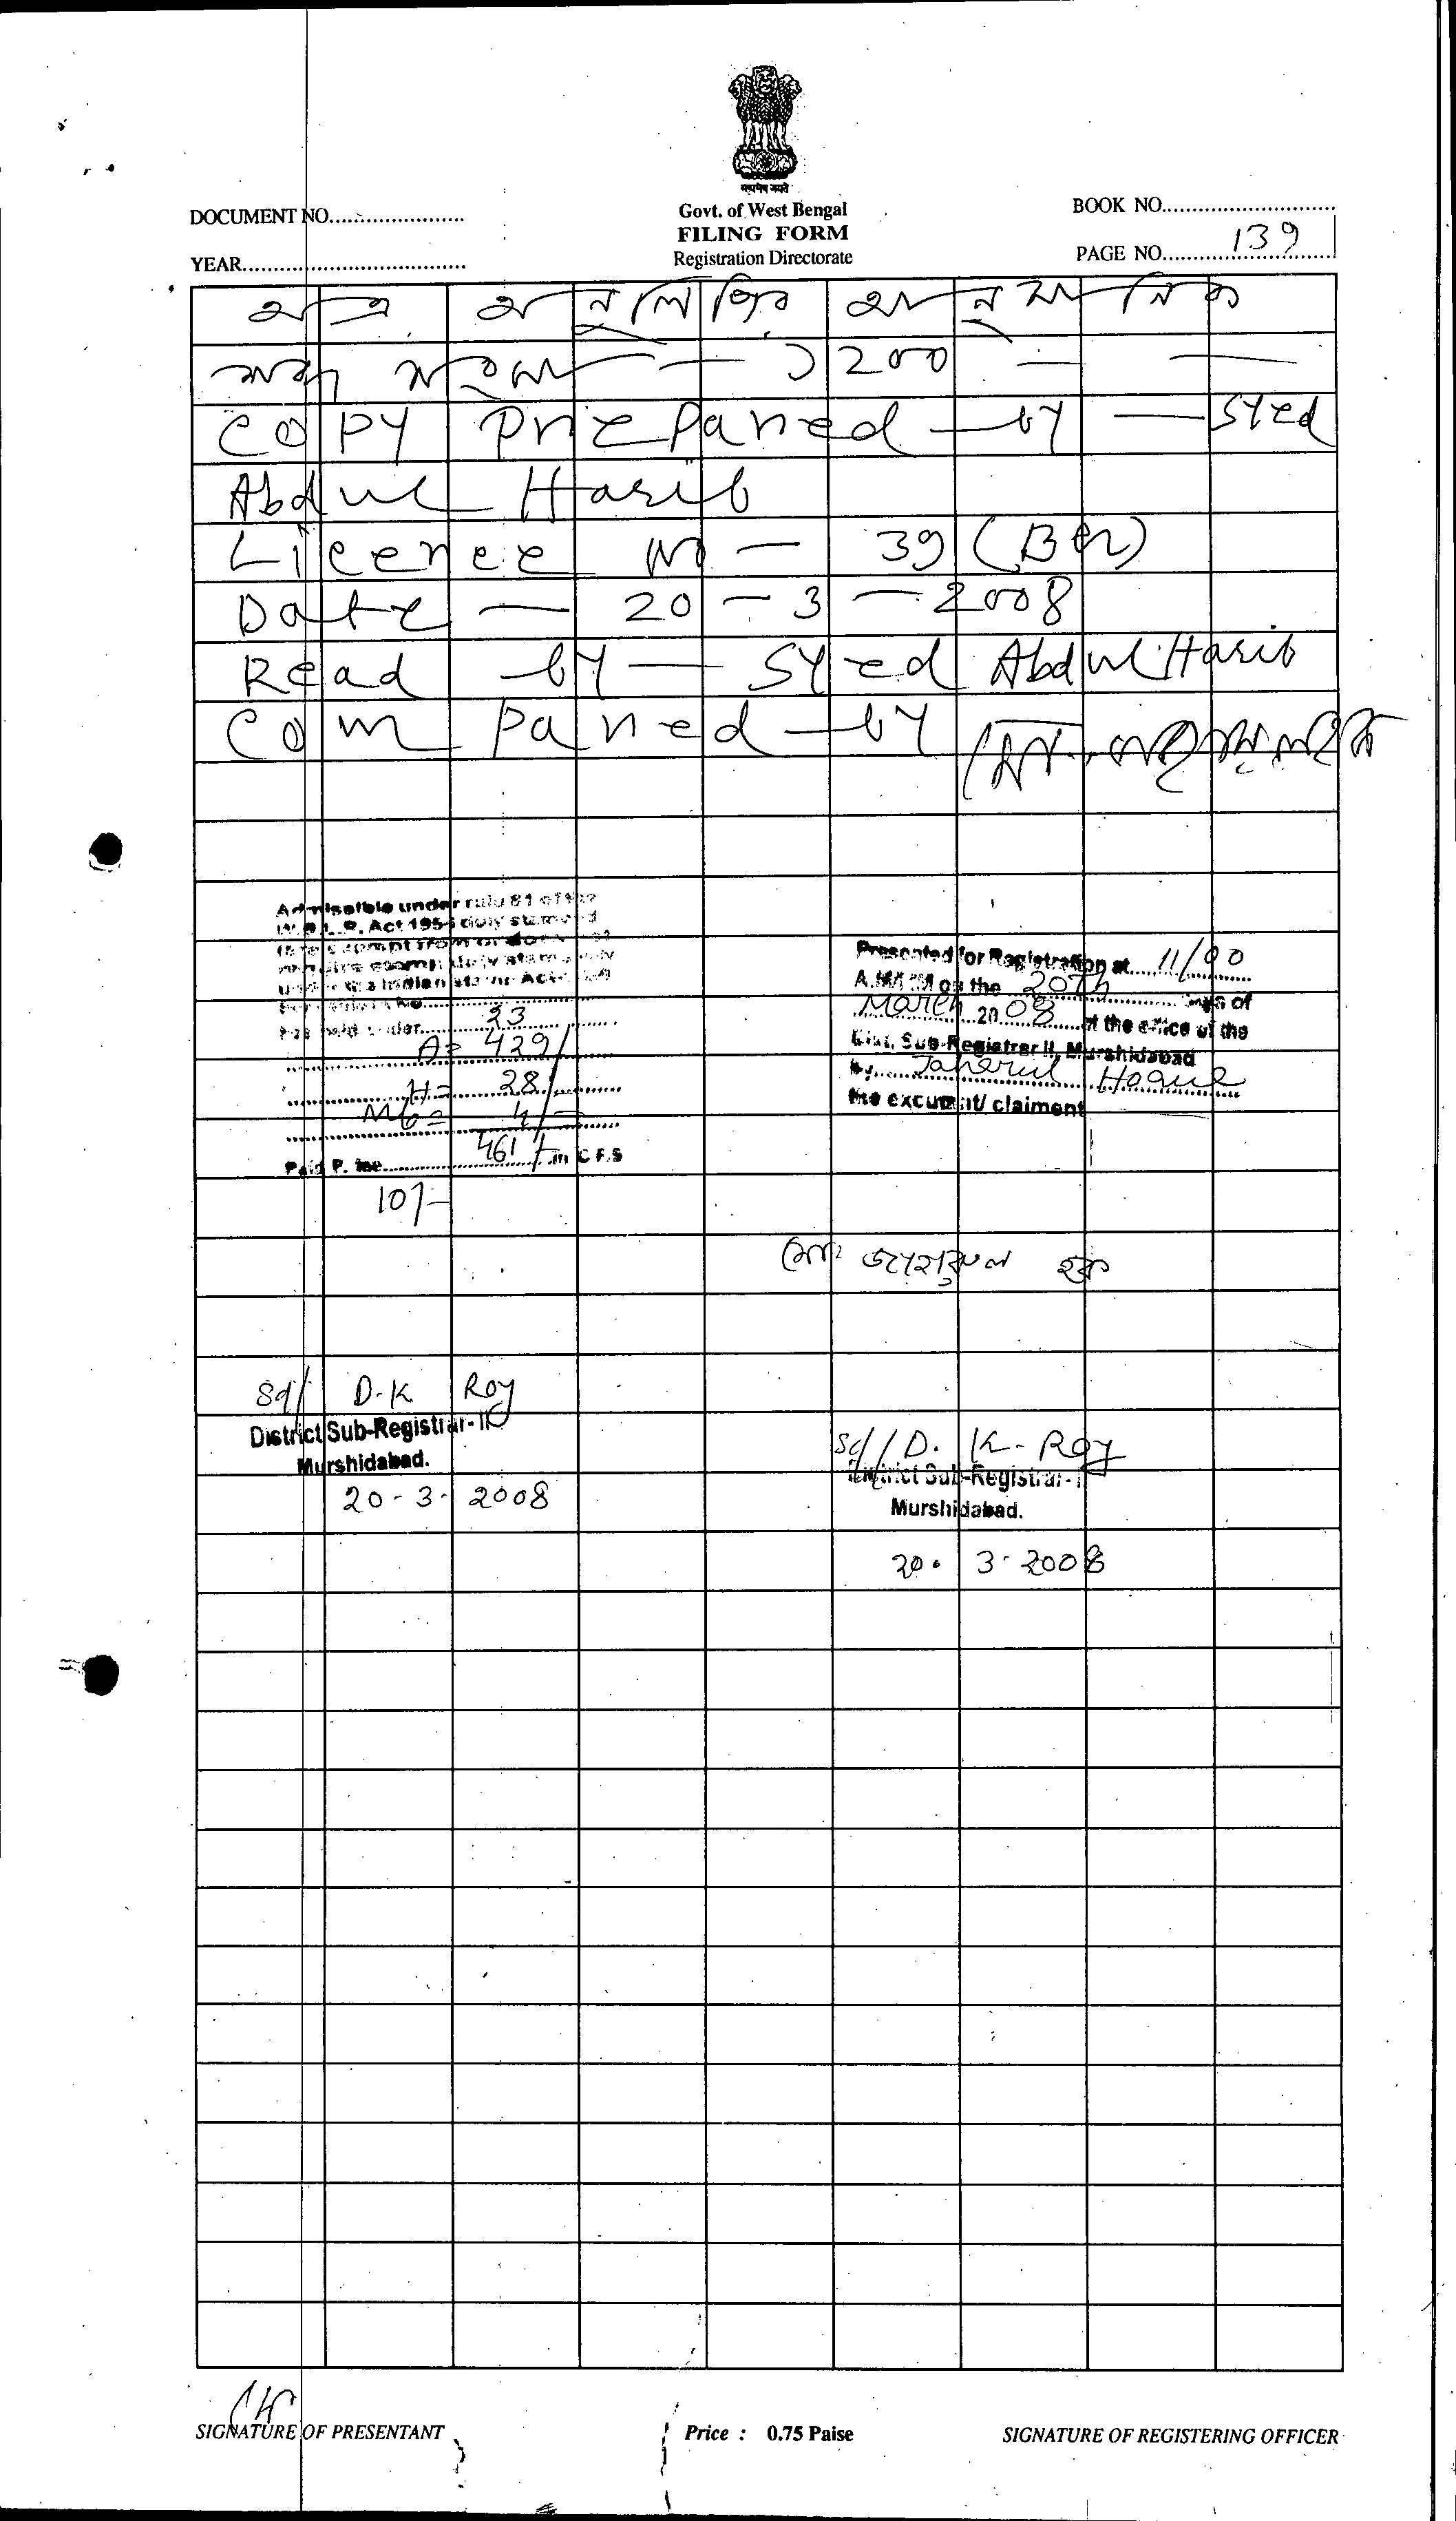 सत्यमेव जयते
DOCUMENT NO.....................
Govt. of West Bengal
BOOK NO............................
FILING FORM
YEAR....................................
Registration Directorate
PAGE NO............139
অত্র অনুলিপির আনুমানিক
শব্দ সংখ্যা — ১২০০ — —
Copy Prepared by — Syed
Abdul Hasib
Licence No — 39 (Ber)
Date — 20 — 3 — 2008
Read by — Syed Abdul Hasib
Compared by
Admissible under rule 81 of the
W.B.L.R. Act 1955 duly stamped
under the Indian stamp Act
23
A = 429/
H = 28/
Mb = 4/-
461/-
Paid P. fee.............in C F.S
10/-
Presented for Registration at 11/00
A.M/P.M on the 20th days of
March 2008 at the office of the
Dist. Sub-Registrar II, Murshidabad
by Jaherul Hoque
the excutant/ claiment
মোঃ জাহারুল হক
Sd/ D. K Roy
District Sub-Registrar-II
Murshidabad.
20-3-2008
Sd/ D. K. Roy
District Sub-Registrar-II
Murshidabad.
20.3.2008
SIGNATURE OF PRESENTANT
Price : 0.75 Paise
SIGNATURE OF REGISTERING OFFICER